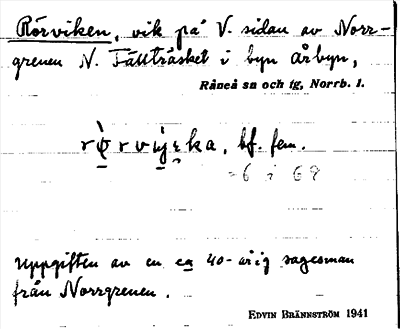 Rörviken, vik på V. sidan av Norr-
grenen N. Tällträsket i byn Årbyn,
Råneå sn och tg, Norrb. l.
bf. fem.
Uppgiften av en ca 40-årig sagesman
från Norrgrenen.
EDVIN BRÄNNSTRÖM 1941